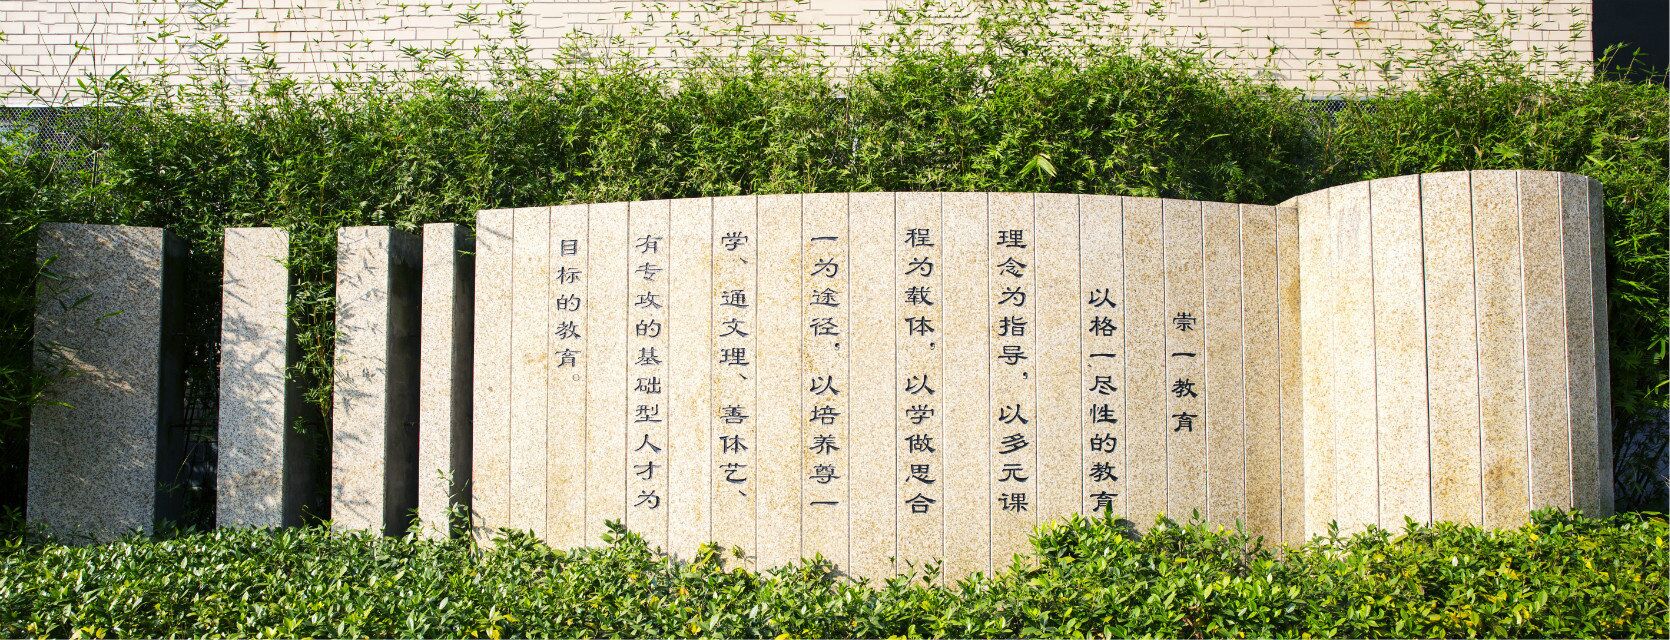 崇一教育
以格一尽性的教育
理念为指导，以多元课
程为载体，以学做思合
一为途径，以培养尊一
学、通文理、善体艺、
有专攻的基础型人才为
目标的教育。